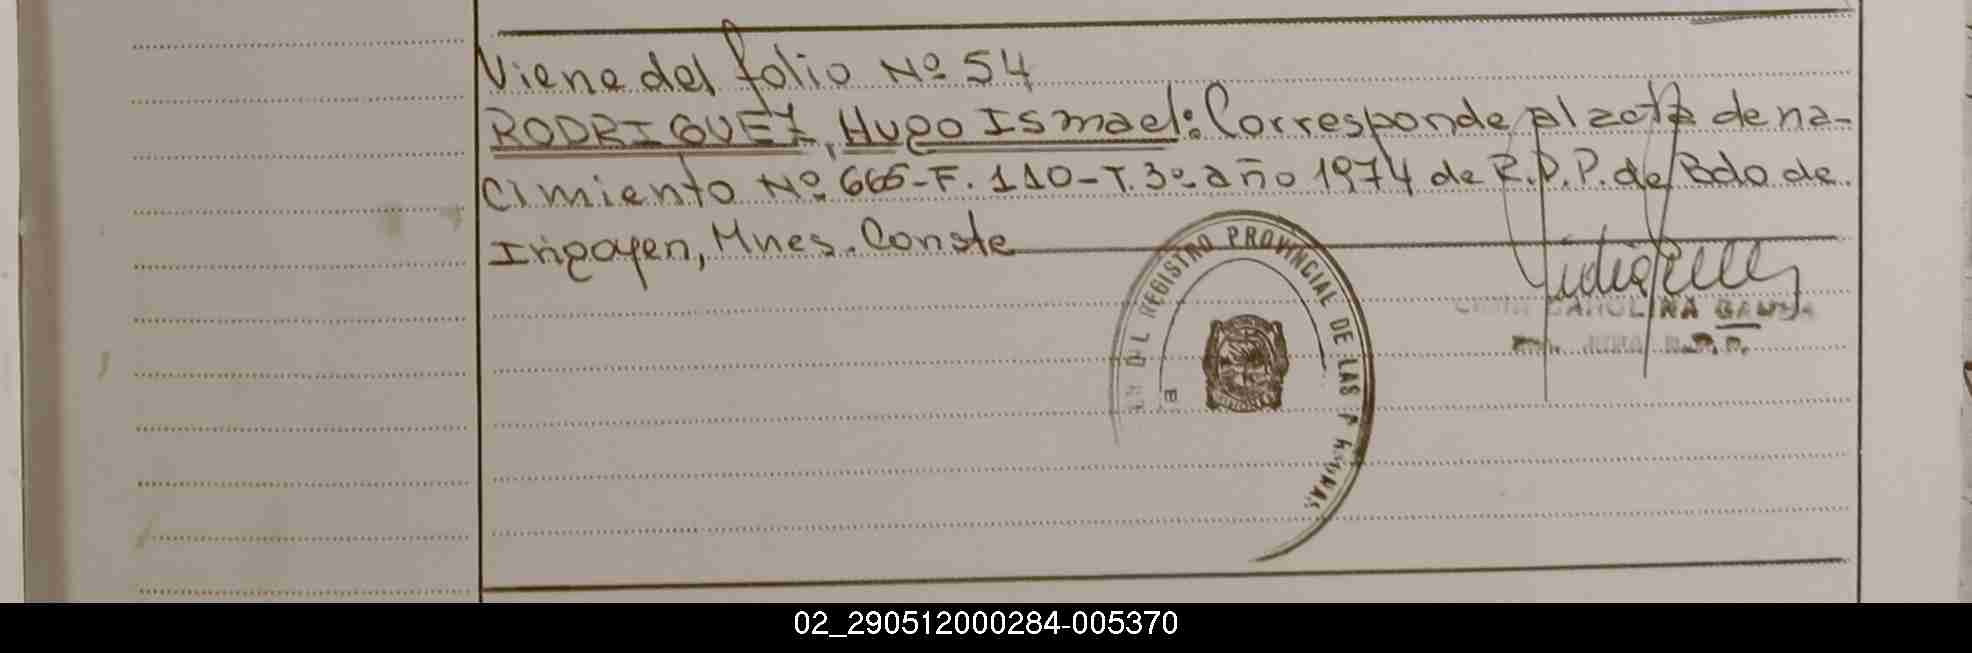 Viene del folio Nº 54
RODRIGUEZ, Hugo Ismael: Corresponde al acta de na-
cimiento Nº 665-F. 110-T. 3º año 1974 de R.P.P. de Bdo de
Irigoyen, Mnes. Conste
REGISTRO PROVINCIAL DE LAS PERSONAS
CAROLINA
02_290512000284-005370